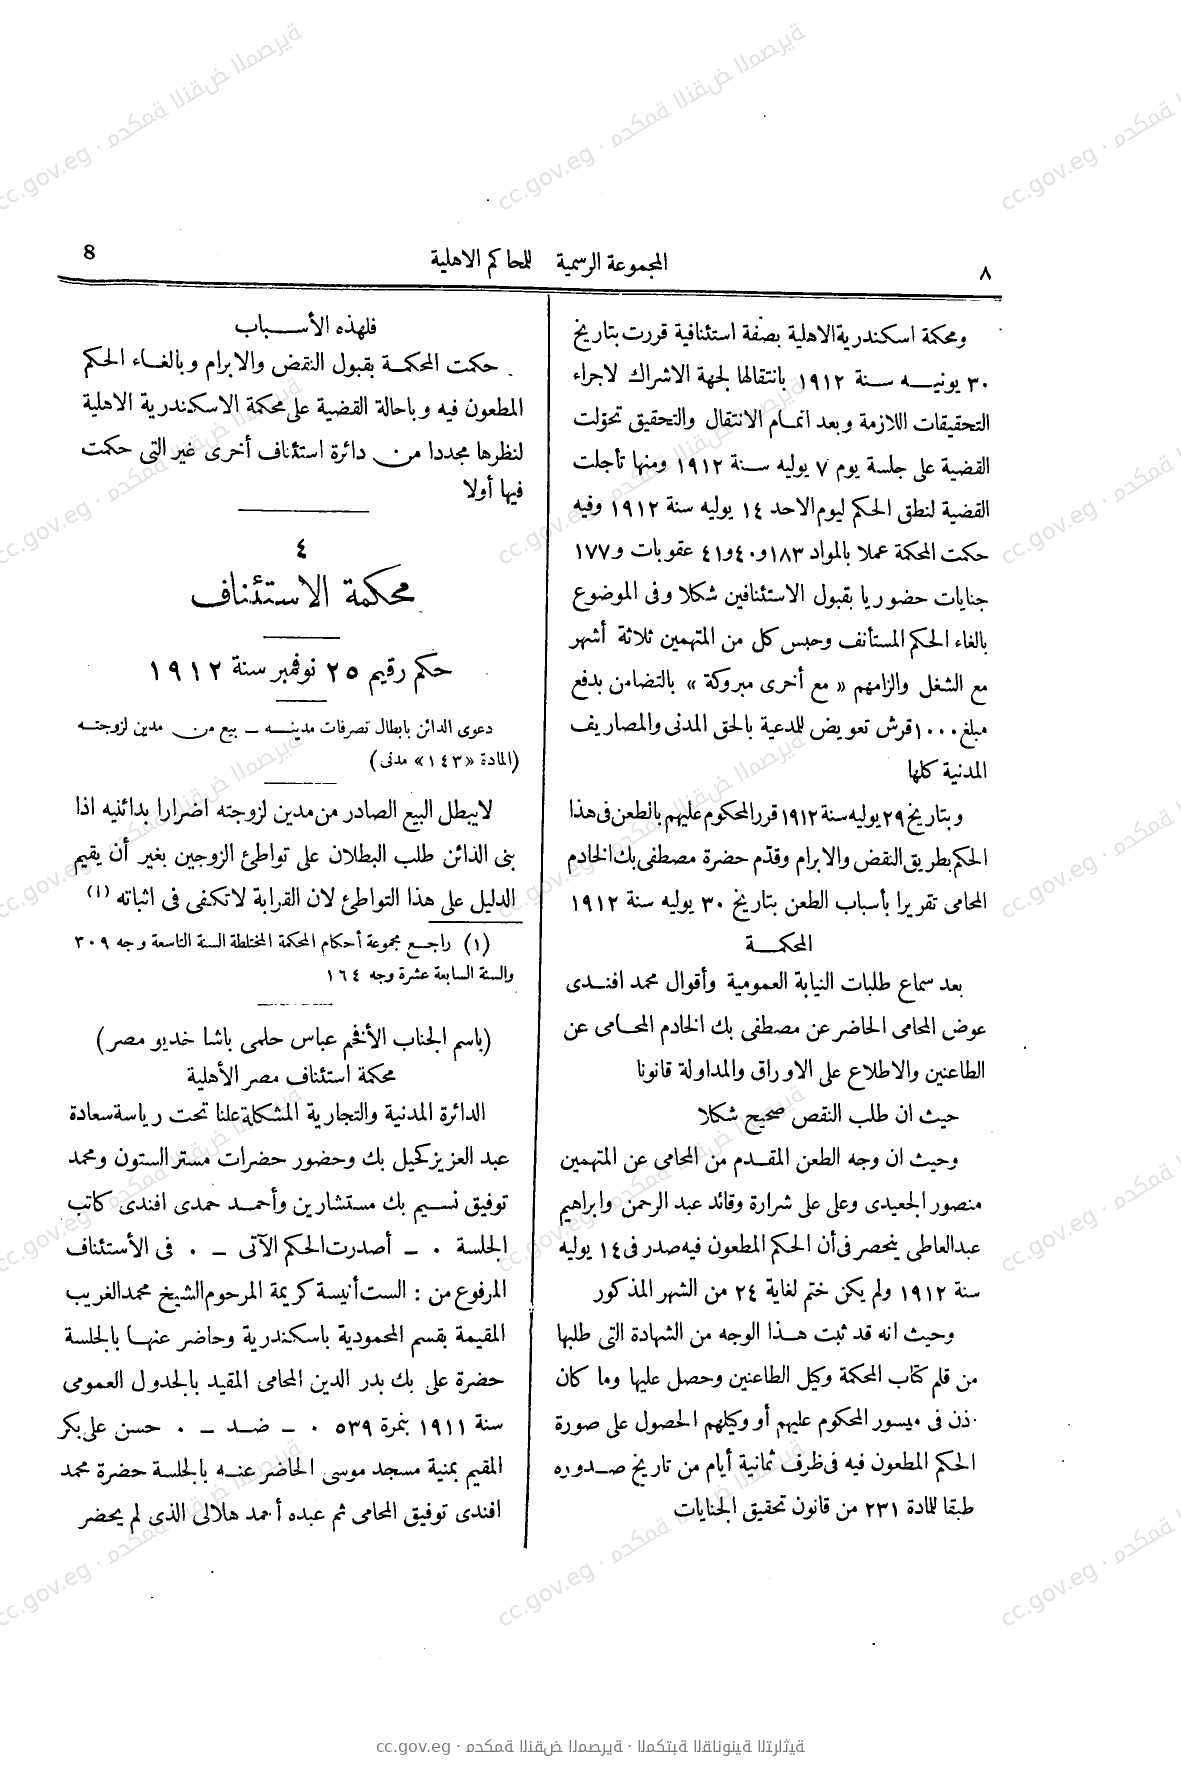 ٨
المجموعة الرسمية للمحاكم الاهلية
8
ومحكمة اسكندرية الاهلية بصفة استئنافية قررت بتاريخ
٣٠ يونيـه سـنة ١٩١٢ بانتقالها لجهة الاشراك لاجراء
التحقيقات اللازمة وبعد اتمـام الانتقال والتحقيق تحوّلت
القضية على جلسة يوم ٧ يوليه سـنة ١٩١٢ ومنها تأجلت
القضية لنطق الحكم ليوم الاحد ١٤ يوليه سنة ١٩١٢ وفيه
حكمت المحكمة عملا بالمواد ١٨٣ و٤٠ و٤١ عقوبات و١٧٧
جنايات حضوريا بقبول الاستئنافين شكلا وفى الموضوع
بالغاء الحكم المستأنف وحبس كل من المتهمين ثلاثة أشهر
مع الشغل والزامهم « مع أخرى مبروكة » بالتضامن بدفع
مبلغ ١٠٠٠ قرش تعويض للمدعية بالحق المدنى والمصاريف
المدنية كلها
وبتاريخ ٢٩ يوليه سنة ١٩١٢ قرر المحكوم عليهم بالطعن فى هذا
الحكم بطريق النقض والابرام وقدّم حضرة مصطفى بك الخادم
المحامى تقريرا بأسباب الطعن بتاريخ ٣٠ يوليه سنة ١٩١٢
المحكمـــة
بعد سماع طلبات النيابة العمومية وأقوال محمد افنـدى
عوض المحامى الحاضر عن مصطفى بك الخادم المحـامى عن
الطاعنين والاطلاع على الاوراق والمداولة قانونا
حيث ان طلب النقص صحيح شكلا
وحيث ان وجه الطعن المقـدم من المحامى عن المتهمين
منصور الجعيدى وعلى على شرارة وقائد عبد الرحمن وابراهيم
عبد العاطى ينحصر فى أن الحكم المطعون فيه صدر فى ١٤ يوليه
سنة ١٩١٢ ولم يكن ختم لغاية ٢٤ من الشهر المذكور
وحيث انه قد ثبت هـذا الوجه من الشهادة التى طلبها
من قلم كتاب المحكمة وكيل الطاعنين وحصل عليها وما كان
ذن فى ميسور المحكوم عليهم أو وكيلهم الحصول على صورة
الحكم المطعون فيه فى ظرف ثمانية أيام من تاريخ صـدوره
طبقا للمادة ٢٣١ من قانون تحقيق الجنايات
فلهذه الأسـباب
حكمت المحكمـة بقبول النقض والابرام وبالغـاء الحكم
المطعون فيه وباحالة القضية على محكمة الاسكندرية الاهلية
لنظرها مجددا من دائرة استئناف أخرى غير التى حكمت
فيها أولا
٤
محكمة الاستئناف
حكم رقيم ٢٥ نوفمبر سنة ١٩١٢
دعوى الدائن بابطال تصرفات مدينـه ــ بيع من مدين لزوجته
(المادة «١٤٣» مدنى)
لايبطل البيع الصادر من مدين لزوجته اضرارا بدائنيه اذا
بنى الدائن طلب البطلان على تواطئ الزوجين بغير أن يقيم
الدليل على هذا التواطئ لان القرابة لاتكفى فى اثباته (١)
(١) راجـع مجموعة أحكام المحكمة المختلطة السنة التاسعة وجه ٣٠٩
والسنة السابعة عشرة وجه ١٦٤
(باسم الجناب الأفخم عباس حلمى باشا خديو مصر)
محكمة استئناف مصر الأهلية
الدائرة المدنية والتجارية المشكلة علنا تحت رياسة سعادة
عبد العزيز كحيل بك وحضور حضرات مستر الستون ومحمد
توفيق نسـيم بك مستشارين وأحمـد حمدى افندى كاتب
الجلسة ٠ ــ أصدرت الحكم الآتى ــ ٠ فى الأستئناف
المرفوع من : الست أنيسة كريمة المرحوم الشيخ محمد الغريب
المقيمة بقسم المحمودية باسكندرية وحاضر عنهـا بالجلسة
حضرة على بك بدر الدين المحامى المقيد بالجدول العمومى
سنة ١٩١١ بنمرة ٥٣٩ ٠ ــ ضـد ــ ٠ حسن على بكر
المقيم بمنية مسجد موسى الحاضر عنـه بالجلسة حضرة محمد
افندى توفيق المحامى ثم عبده أحمد هلالى الذى لم يحضر
cc.gov.eg · محكمة النقض المصرية · المكتبة القانونية التراثية